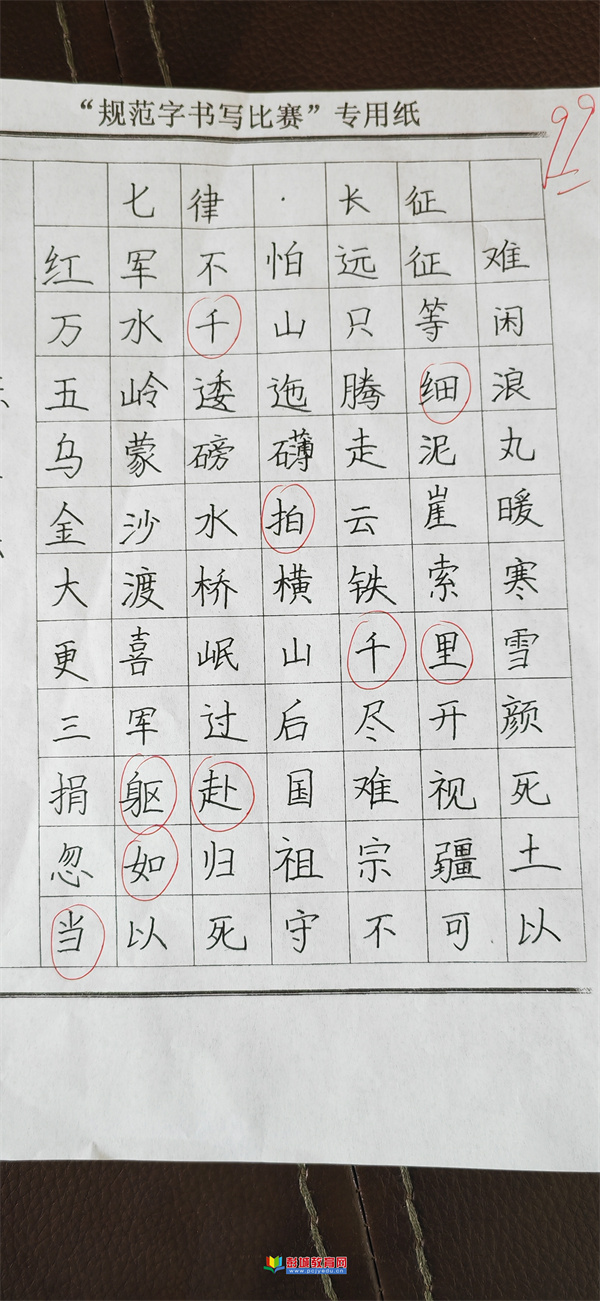 “规范字书写比赛”专用纸
99
七律·长征
红军不怕远征难
万水千山只等闲
五岭逶迤腾细浪
乌蒙磅礴走泥丸
金沙水拍云崖暖
大渡桥横铁索寒
更喜岷山千里雪
三军过后尽开颜
捐躯赴国难视死
忽如归祖宗疆土
当以死守不可以
彭城教育网
www.pcjyedu.cn